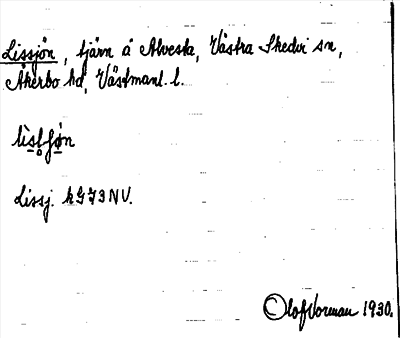 Lissjön, tjärn å Alvesta, Västra Skedvi sn,
Åkerbo hd, Västmanl. l.
Lissj. kG73NV.
Olof Vorman 1930.